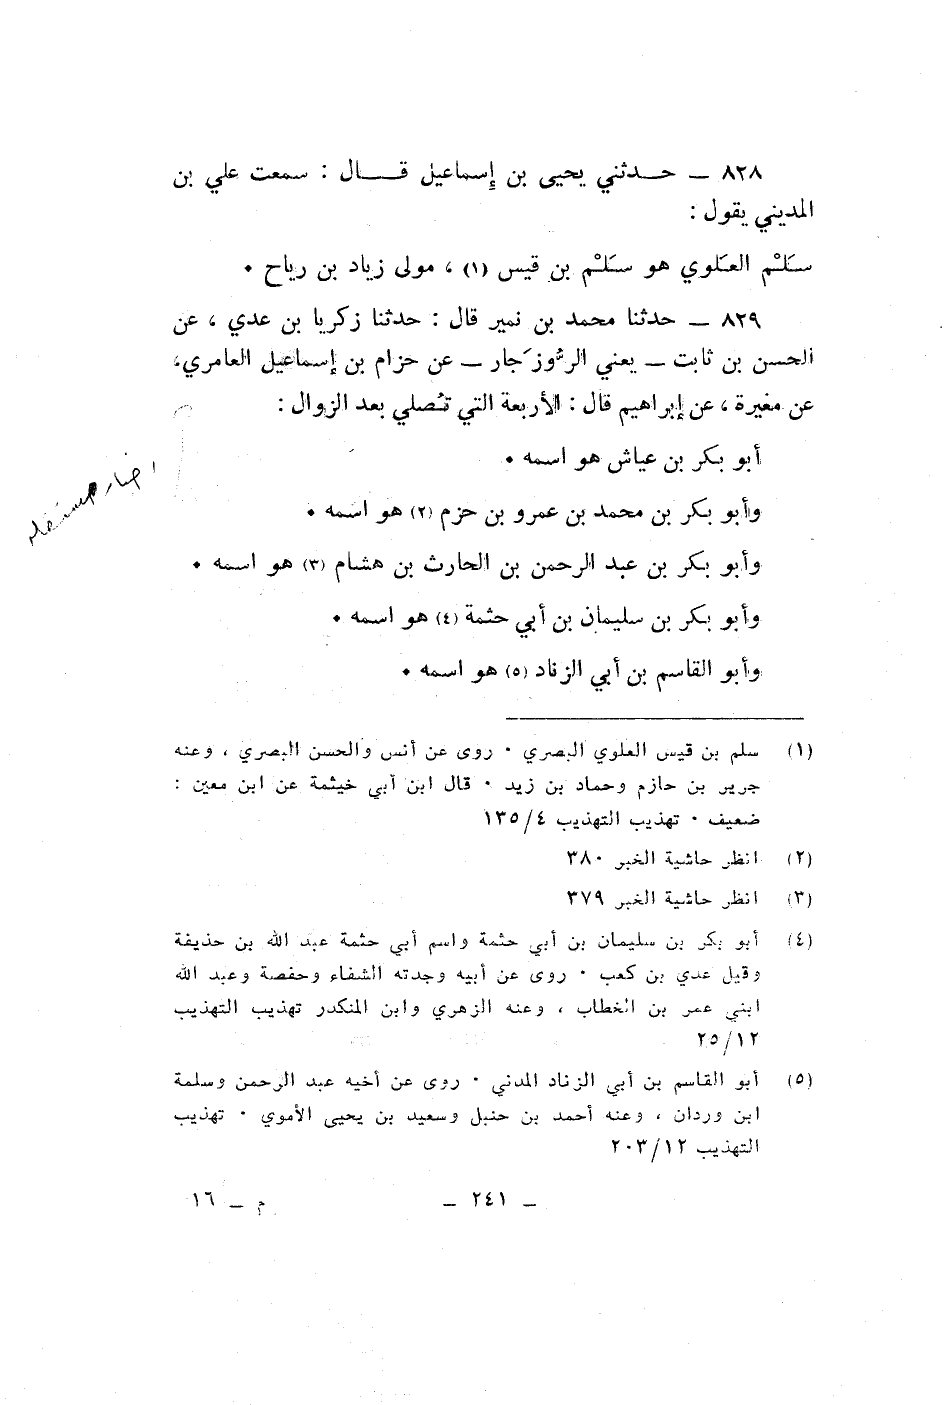 ٨٢٨ ــ حـــدثني يحيى بن إسماعيل قـــــال : سمعت علي بن
المديني يقول :
سَلْم العَلوي هو سَلْم بن قيس (١) ، مولى زياد بن رياح ٠
٨٢٩ ــ حدثنا محمد بن نمير قال : حدثنا زكريا بن عدي ، عن
الحسن بن ثابت ــ يعني الرُّوزَجار ــ عن حزام بن إسماعيل العامري،
عن مغيرة ، عن إبراهيم قال : الأربعة التي تُصلي بعد الزوال :
أبو بكر بن عياش هو اسمه ٠
وأبو بكر بن محمد بن عمرو بن حزم (٢) هو اسمه ٠
وأبو بكر بن عبد الرحمن بن الحارث بن هشام (٣) هو اسمه ٠
وأبو بكر بن سليمان بن أبي حثمة (٤) هو اسمه ٠
وأبو القاسم بن أبي الزناد (٥) هو اسمه ٠
(١) سلم بن قيس العلوي البصري ٠ روى عن أنس والحسن البصري ، وعنه
جرير بن حازم وحماد بن زيد ٠ قال ابن أبي خيثمة عن ابن معين :
ضعيف ٠ تهذيب التهذيب ١٣٥/٤
(٢) انظر حاشية الخبر ٣٨٠
(٣) انظر حاشية الخبر ٣٧٩
(٤) أبو بكر بن سليمان بن أبي حثمة واسم أبي حثمة عبد الله بن حذيفة
وقيل عدي بن كعب ٠ روى عن أبيه وجدته الشفاء وحفصة وعبد الله
ابني عمر بن الخطاب ، وعنه الزهري وابن المنكدر تهذيب التهذيب
٢٥/١٢
(٥) أبو القاسم بن أبي الزناد المدني ٠ روى عن أخيه عبد الرحمن وسلمة
ابن وردان ، وعنه أحمد بن حنبل وسعيد بن يحيى الأموي ٠ تهذيب
التهذيب ٢٠٣/١٢
ــ ٢٤١ ــ م ــ ١٦